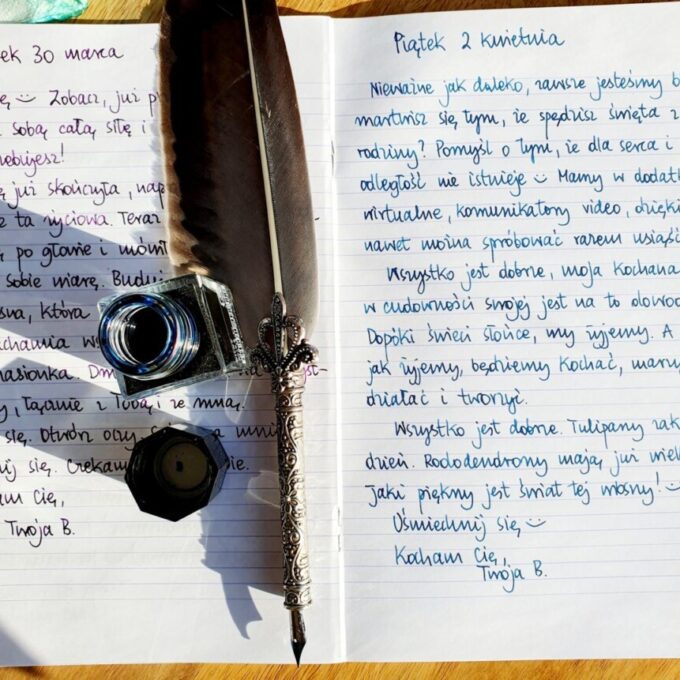 ek 30 marca
ę Zobacz, już
sobą całą siłę i
ebujesz!
ę już skończyła,
ta życiowa. Teraz
po głowie i
sobie miarę.
która
asionka.
y, łącznie z Tobą i ze mną.
się. Otwórz oczy.
ij się.
am Cię,
Twoja B.
Piątek 2 kwietnia
Nieważne jak daleko, zawsze jesteśmy b
martwisz się tym, że spędzisz święta z
rodziny? Pomyśl o tym, że dla serca i
odległość nie istnieje Mamy w dodatk
wirtualne, komunikatory video, dzięki
nawet można spróbować razem usiąść
Wszystko jest dobrze, moja Kochana
w cudowności swojej jest na to dowod
Dopóki świeci słońce, my żyjemy. A
jak żyjemy, będziemy kochać, marzy
działać i tworzyć.
Wszystko jest dobrze. Tulipany zak
dzień. Rododendrony mają już wiel
jaki piękny jest świat tej wiosny!
Uśmiechnij się
Kocham Cię,
Twoja B.